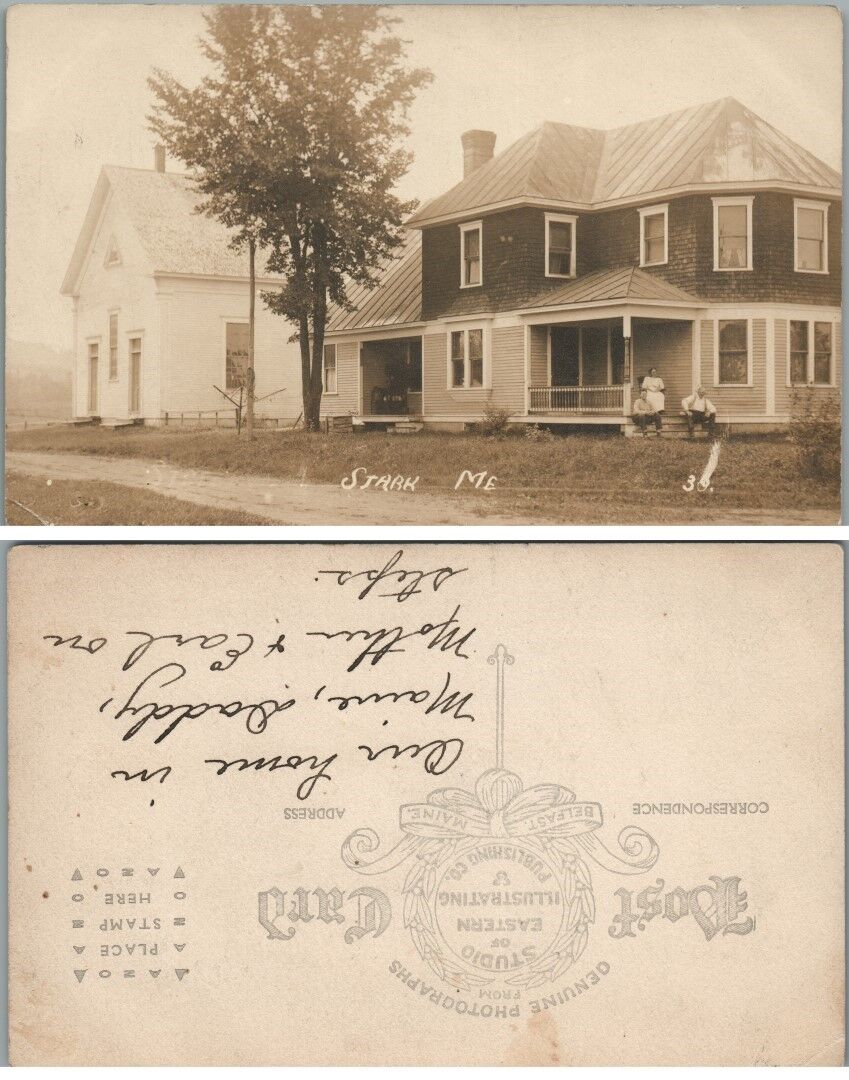 STARK ME 38.
Our home in
Maine, Daddy,
Mother & Earl on
steps.
POST CARD
GENUINE PHOTOGRAPHS
FROM
STUDIO
OF
EASTERN
ILLUSTRATING
&
PUBLISHING CO.
BELFAST. MAINE.
CORRESPONDENCE
ADDRESS
AZO
PLACE
STAMP
HERE
AZO